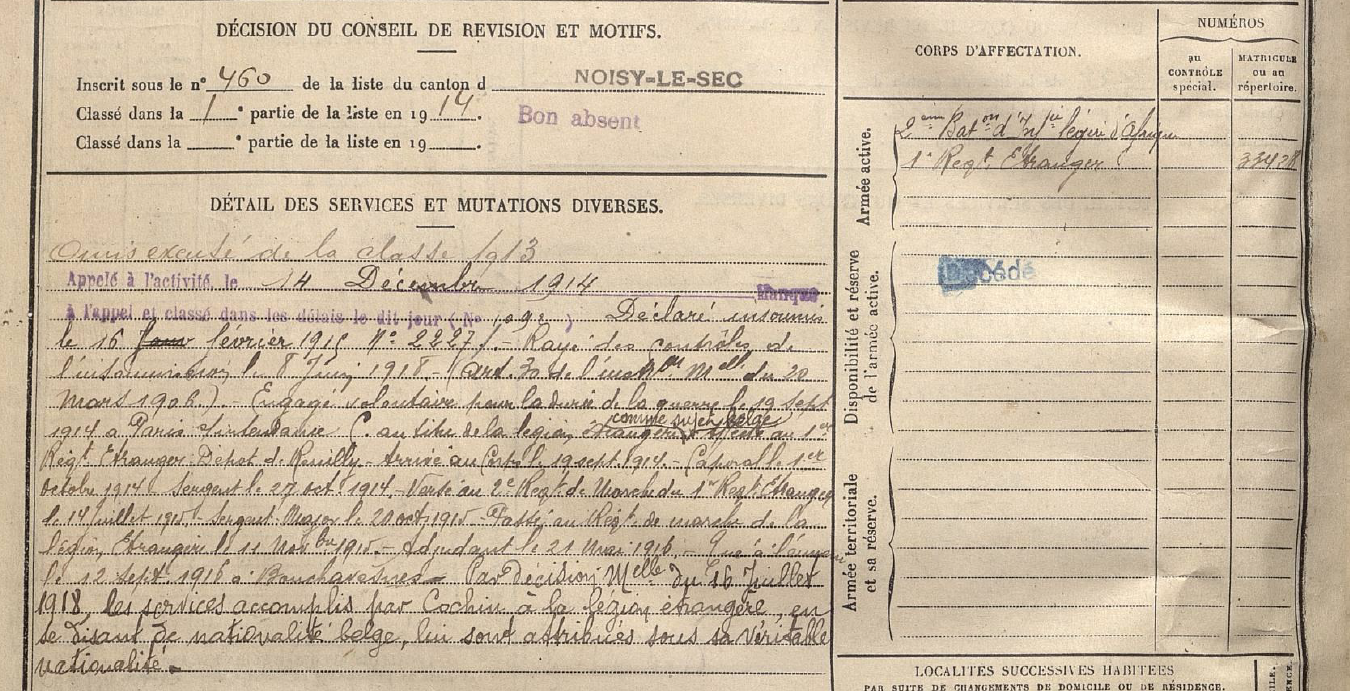 DÉCISION DU CONSEIL DE REVISION ET MOTIFS.
Inscrit sous le n° 460 de la liste du canton d NOISY-LE-SEC
Classé dans la 1 e partie de la liste en 1914.
Bon absent
Classé dans la e partie de la liste en 19 .
DÉTAIL DES SERVICES ET MUTATIONS DIVERSES.
Omis excusé de la classe 1913
Appelé à l'activité, le 14 Décembre 1914 Manque
à l'appel et classé dans les délais le dit jour (N° ) Déclaré insoumis
le 16 février 1915 N° 2227. - Rayé des contrôles de
l'insoumission le 8 Juin 1918. - (Art. 70 de l'inst Mlle du 20
Mars 1906) - Engagé volontaire pour la durée de la guerre le 19 sept
1914 à Paris Intendance C. au titre de la légion étrangère comme sujet belge affecté au 1er
Régt Etranger Dépôt de Reuilly - Arrivé au Corps le 19 sept. 1914. - Caporal le 1er
octobre 1914 Sergent le 27 oct. 1914. - Versé au 2e Regt de Marche du 1er Regt Etranger
le 14 juillet 1915 - Sergent Major le 20 oct. 1915 - Passé au Régt de marche de la
légion Etrangère le 11 Novbre 1915. - Adjudant le 21 Mai 1916. - Tué à l'ennemi
le 12 Sept. 1916 à Bouchavesnes - Par décision Melle du 16 Juillet
1918, les services accomplis par Cochin à la légion étrangère, en
se disant de nationalité belge, lui sont attribués sous sa véritable
nationalité. -
CORPS D'AFFECTATION.
NUMÉROS
au CONTRÔLE spécial.
MATRICULE ou au répertoire.
Armée active.
2ème Baton d'Infie légère d'Afrique
1er Regt. Etranger 33428
Disponibilité et réserve de l'armée active.
Décédé
Armée territoriale et sa réserve.
LOCALITÉS SUCCESSIVES HABITÉES
PAR SUITE DE CHANGEMENTS DE DOMICILE OU DE RÉSIDENCE.